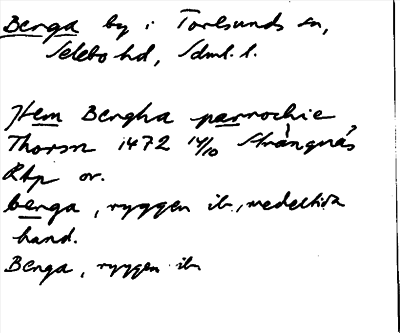 Berga by i Torlsunds sn,
Selebo hd, Sdml. l.
Item Bergha parrochie
Thorsn 1472 14/10 Strängnäs
RAp or.
berga, ryggen ib., medeltida
hand.
Berga, ryggen ib